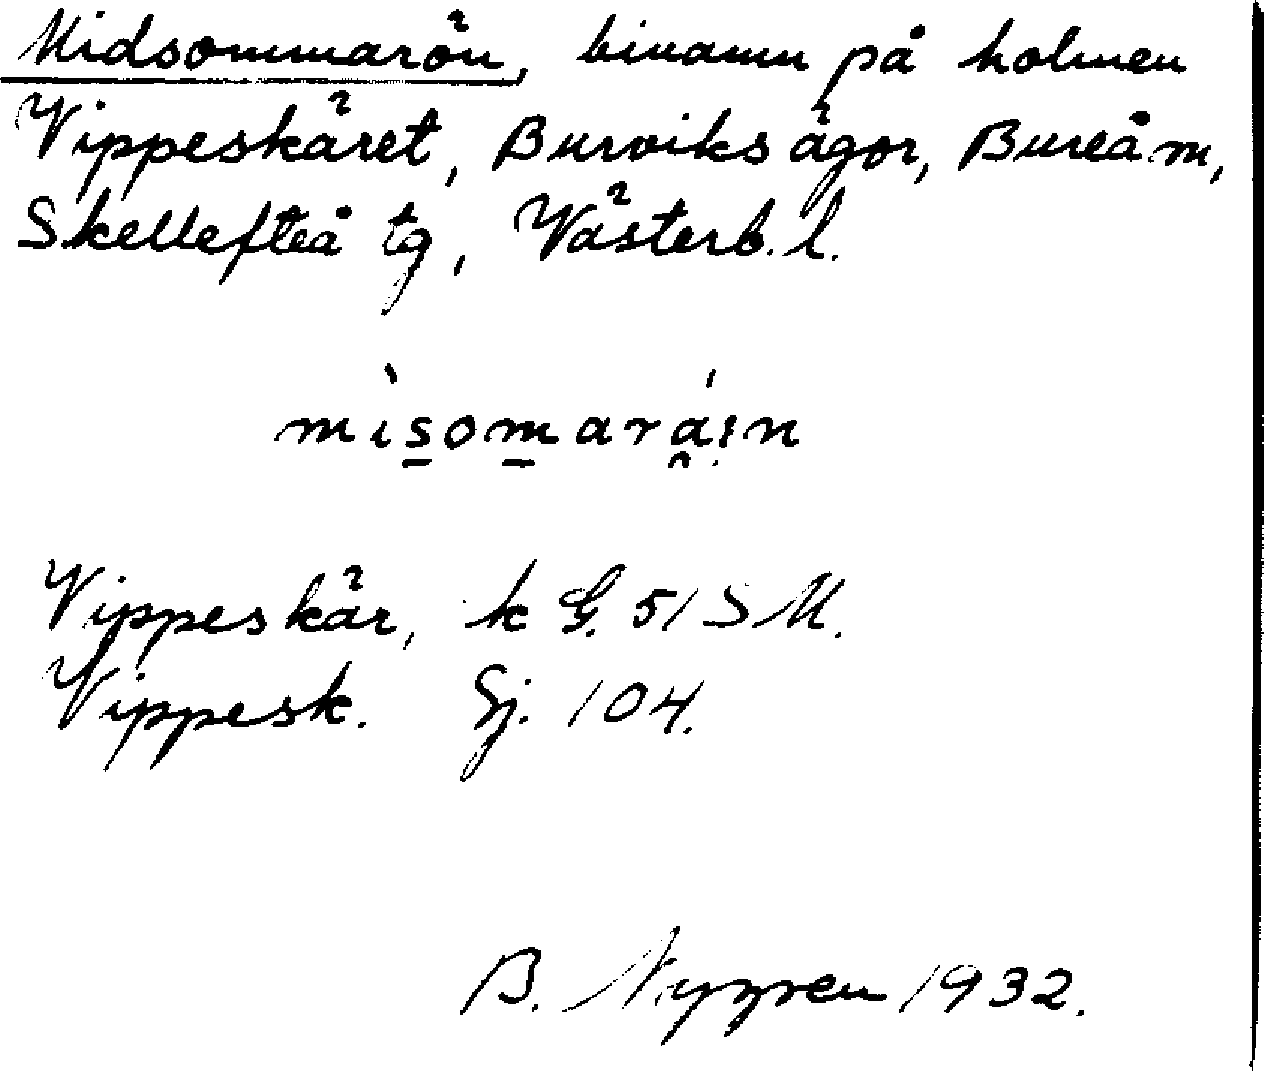 Midsommarön, binamn på holmen
Vippeskäret, Burviks ägor, Bureå sn,
Skellefteå tg, Västerb. l.
mìs̱om̱ará̯ın
Vippeskär, k G. 51 S M.
Vippesk. Sj. 104.
B. Nygren 1932.